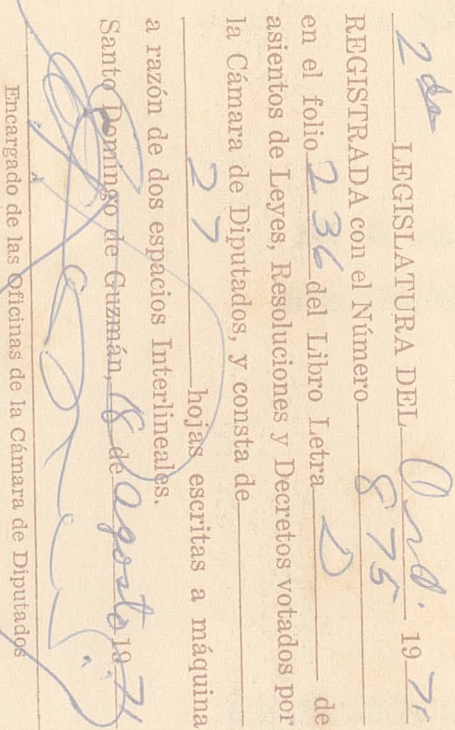 2da LEGISLATURA DEL Ord. 1971
REGISTRADA con el Número 875
en el folio 236 del Libro Letra D de
asientos de Leyes, Resoluciones y Decretos votados por
la Cámara de Diputados, y consta de
27 hojas escritas a máquina
a razón de dos espacios Interlineales.
Santo Domingo de Guzmán, 18 de agosto 1971
Encargado de las Oficinas de la Cámara de Diputados